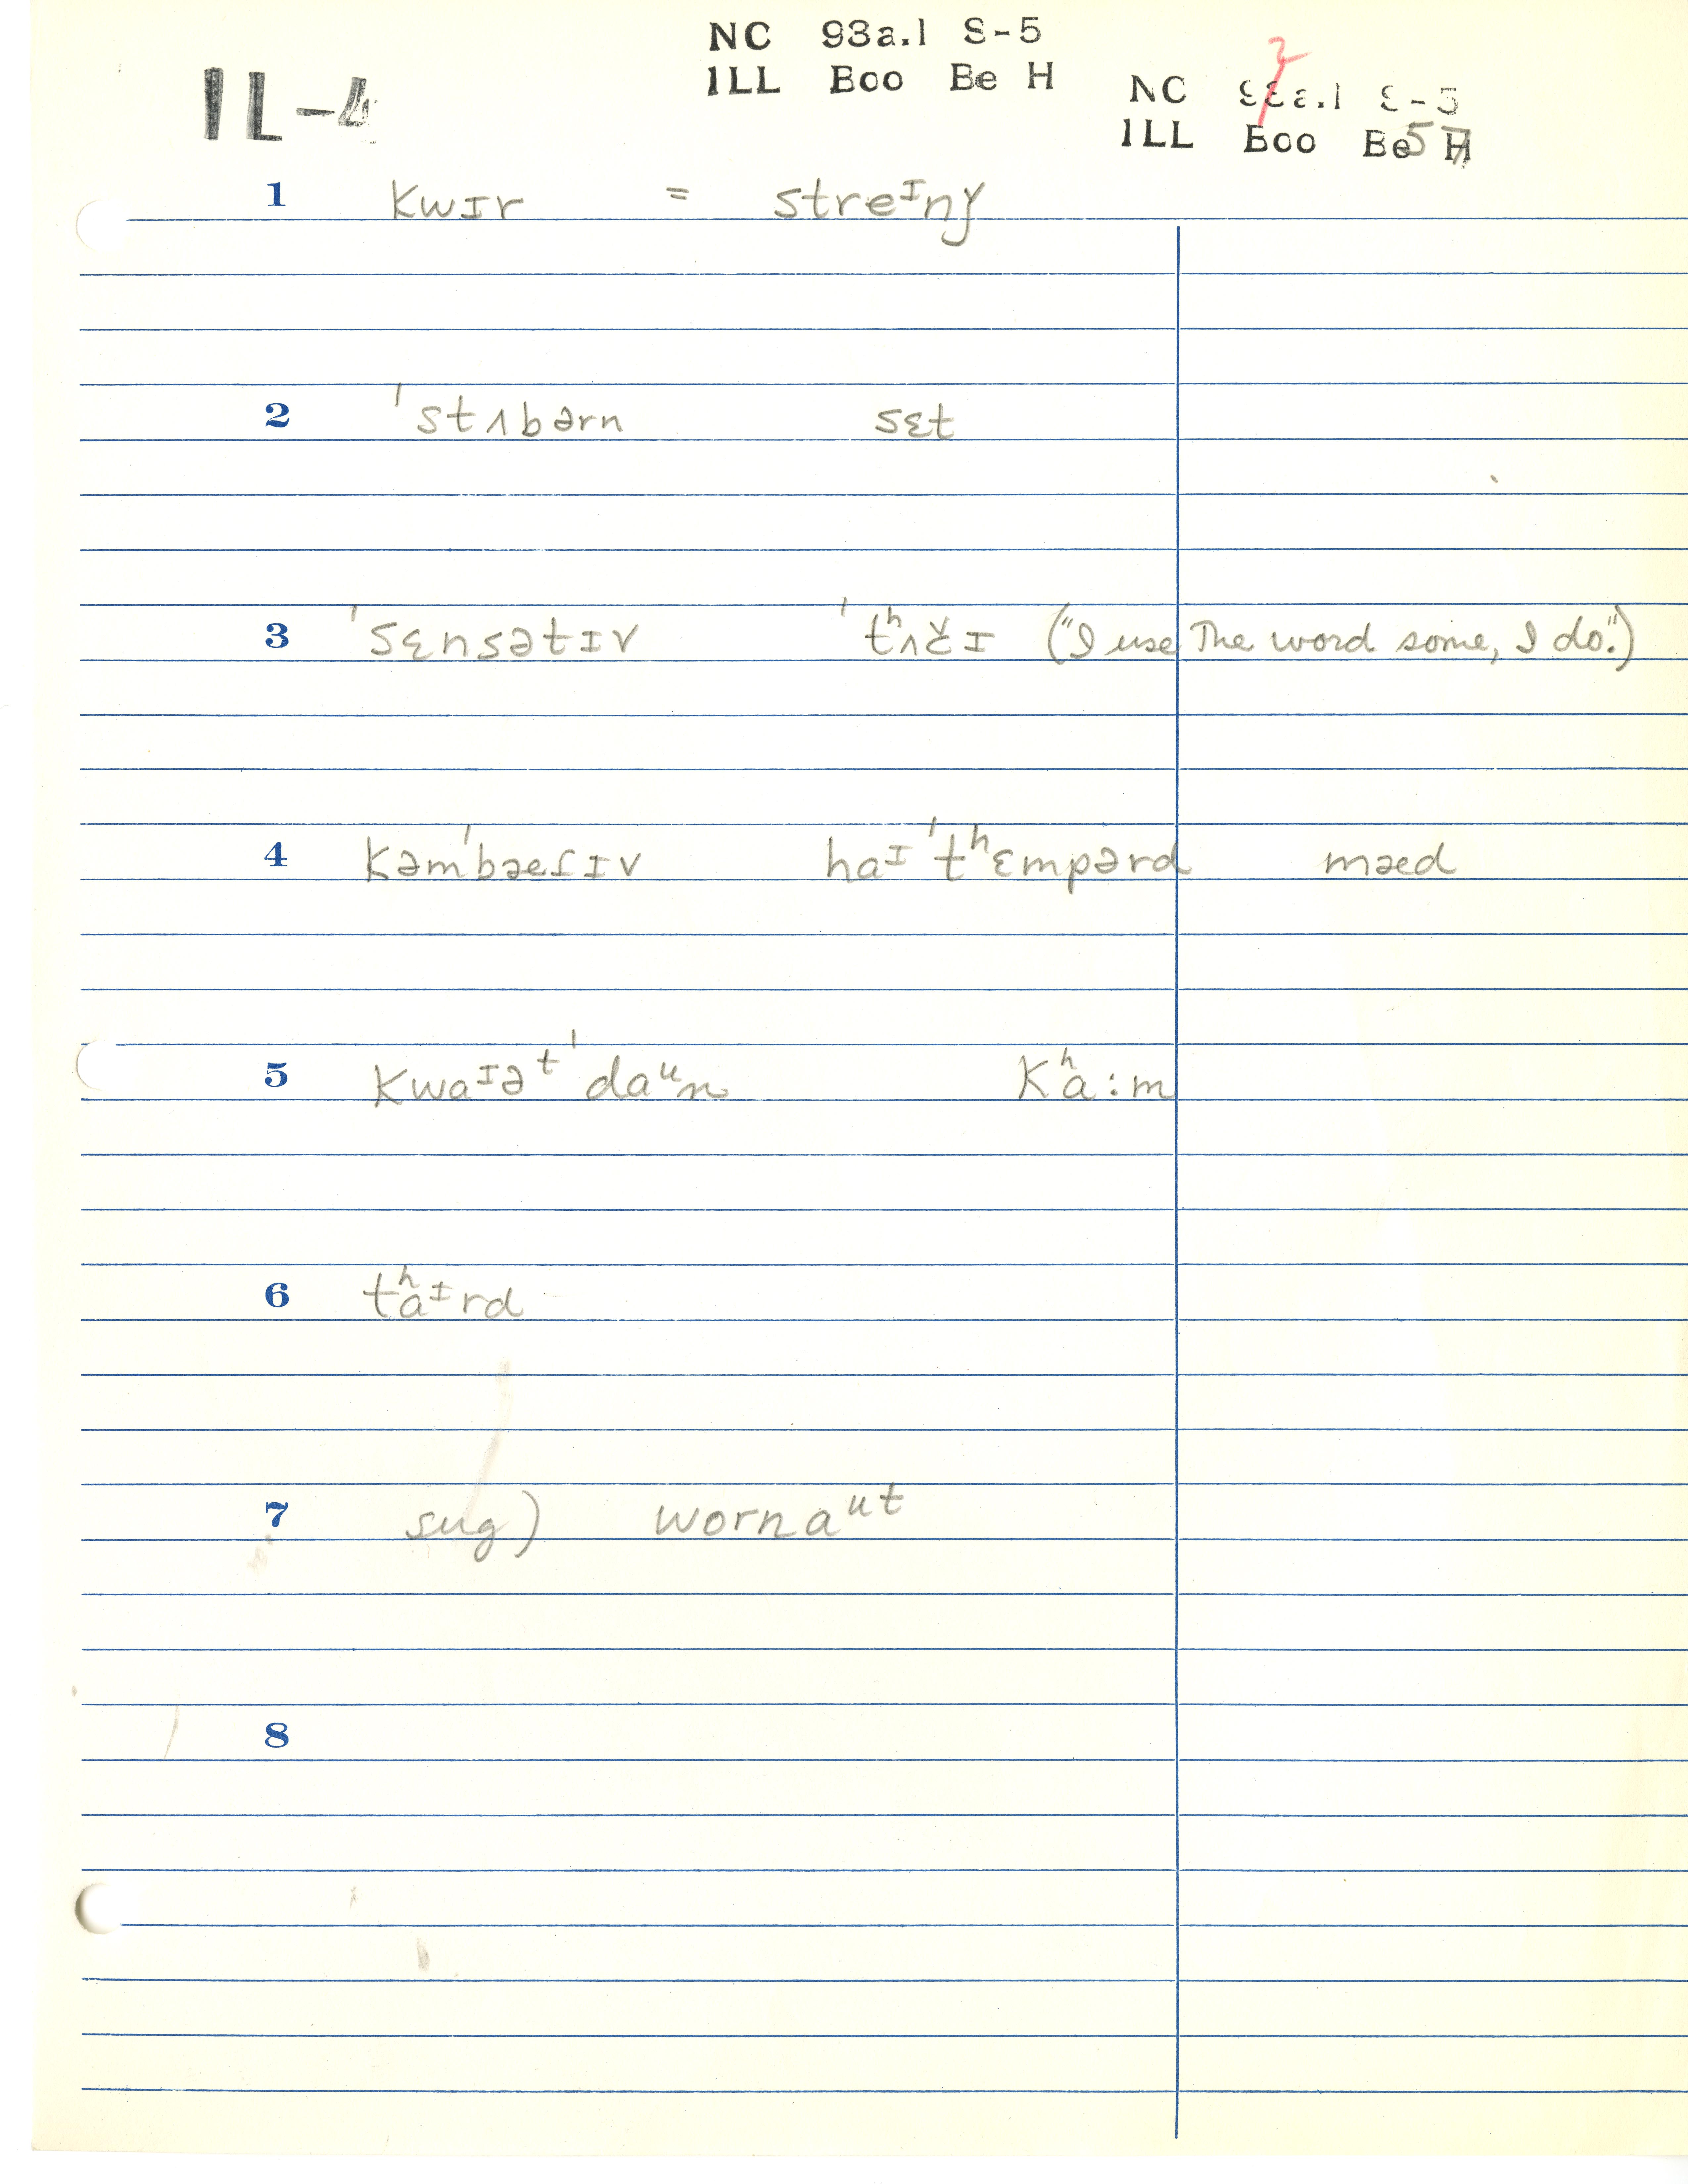 NC 93a.1 S-5
ILL Boo Be H
IL-4
2
NC 93a.1 S-5
ILL Boo Be 5 H
1 kwɪr = streᶦnǰ
2 ˈstʌbərn sɛt
3 ˈsɛnsətɪv ˈtʰʌčɪ ("I use the word some, I do.")
4 kəmˈbæsɪv haᶦˈtʰɛmpərd mæd
5 kwaᶦəᵗˈdaᵘn kʰa:m
6 tʰaᶦrd
7 sug) wornaᵘᵗ
8